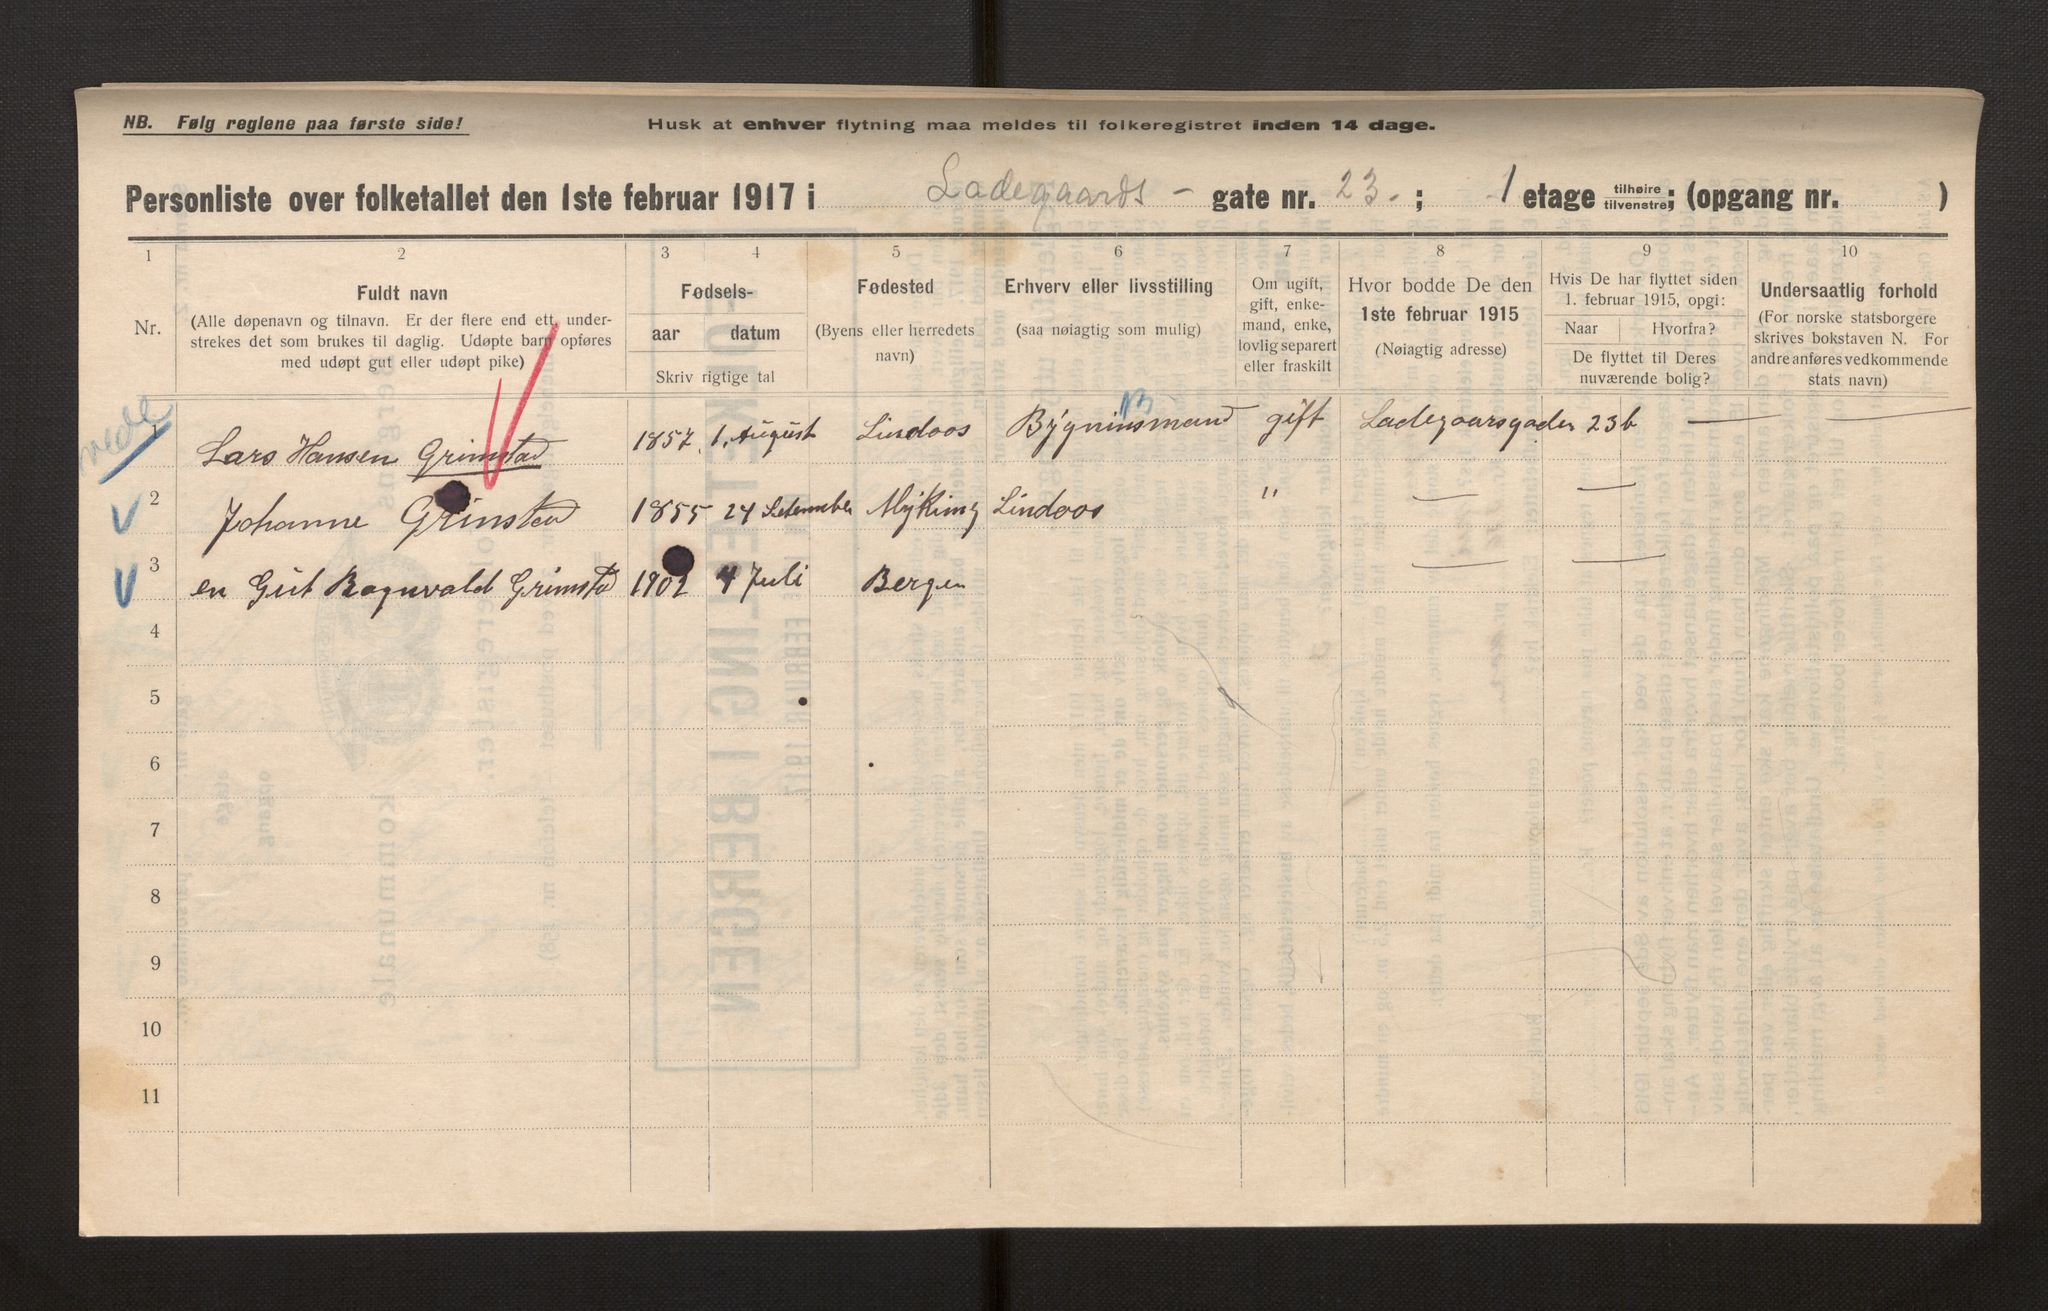 NB. Følg reglene paa første side!
Husk at enhver flytning maa meldes til folkeregistret inden 14 dage.
Personliste over folketallet den 1ste februar 1917 i Ladegaards - gate nr. 23. ; 1 etage tilhøire tilvenstre; (opgang nr. )
1 2 3 4 5 6 7 8 9 10
Nr.
Fuldt navn
(Alle døpenavn og tilnavn. Er der flere end ett, under-
strekes det som brukes til daglig. Udøpte barn opføres
med udøpt gut eller udøpt pike)
Fødsels-
aar datum
Skriv rigtige tal
Fødested
(Byens eller herredets
navn)
Erhverv eller livsstilling
(saa nøiagtig som mulig)
Om ugift,
gift, enke-
mand, enke,
lovlig separert
eller fraskilt
Hvor bodde De den
1ste februar 1915
(Nøiagtig adresse)
Hvis De har flyttet siden
1. februar 1915, opgi:
Naar Hvorfra?
De flyttet til Deres
nuværende bolig?
Undersaatlig forhold
(For norske statsborgere
skrives bokstaven N. For
andre anføres vedkommende
stats navn)
nede
1 Lars Hansen Grimstad 1857 1. August Lindoos Bygninsmand gift Ladegaarsgaden 23b — —
2 Johanne Grinstad 1855 24 Setember Myking Lindoos " — —
3 en Gut Ragnvald Grimstad 1902 4 Juli Bergen — —
4
5
6
7
8
9
10
11